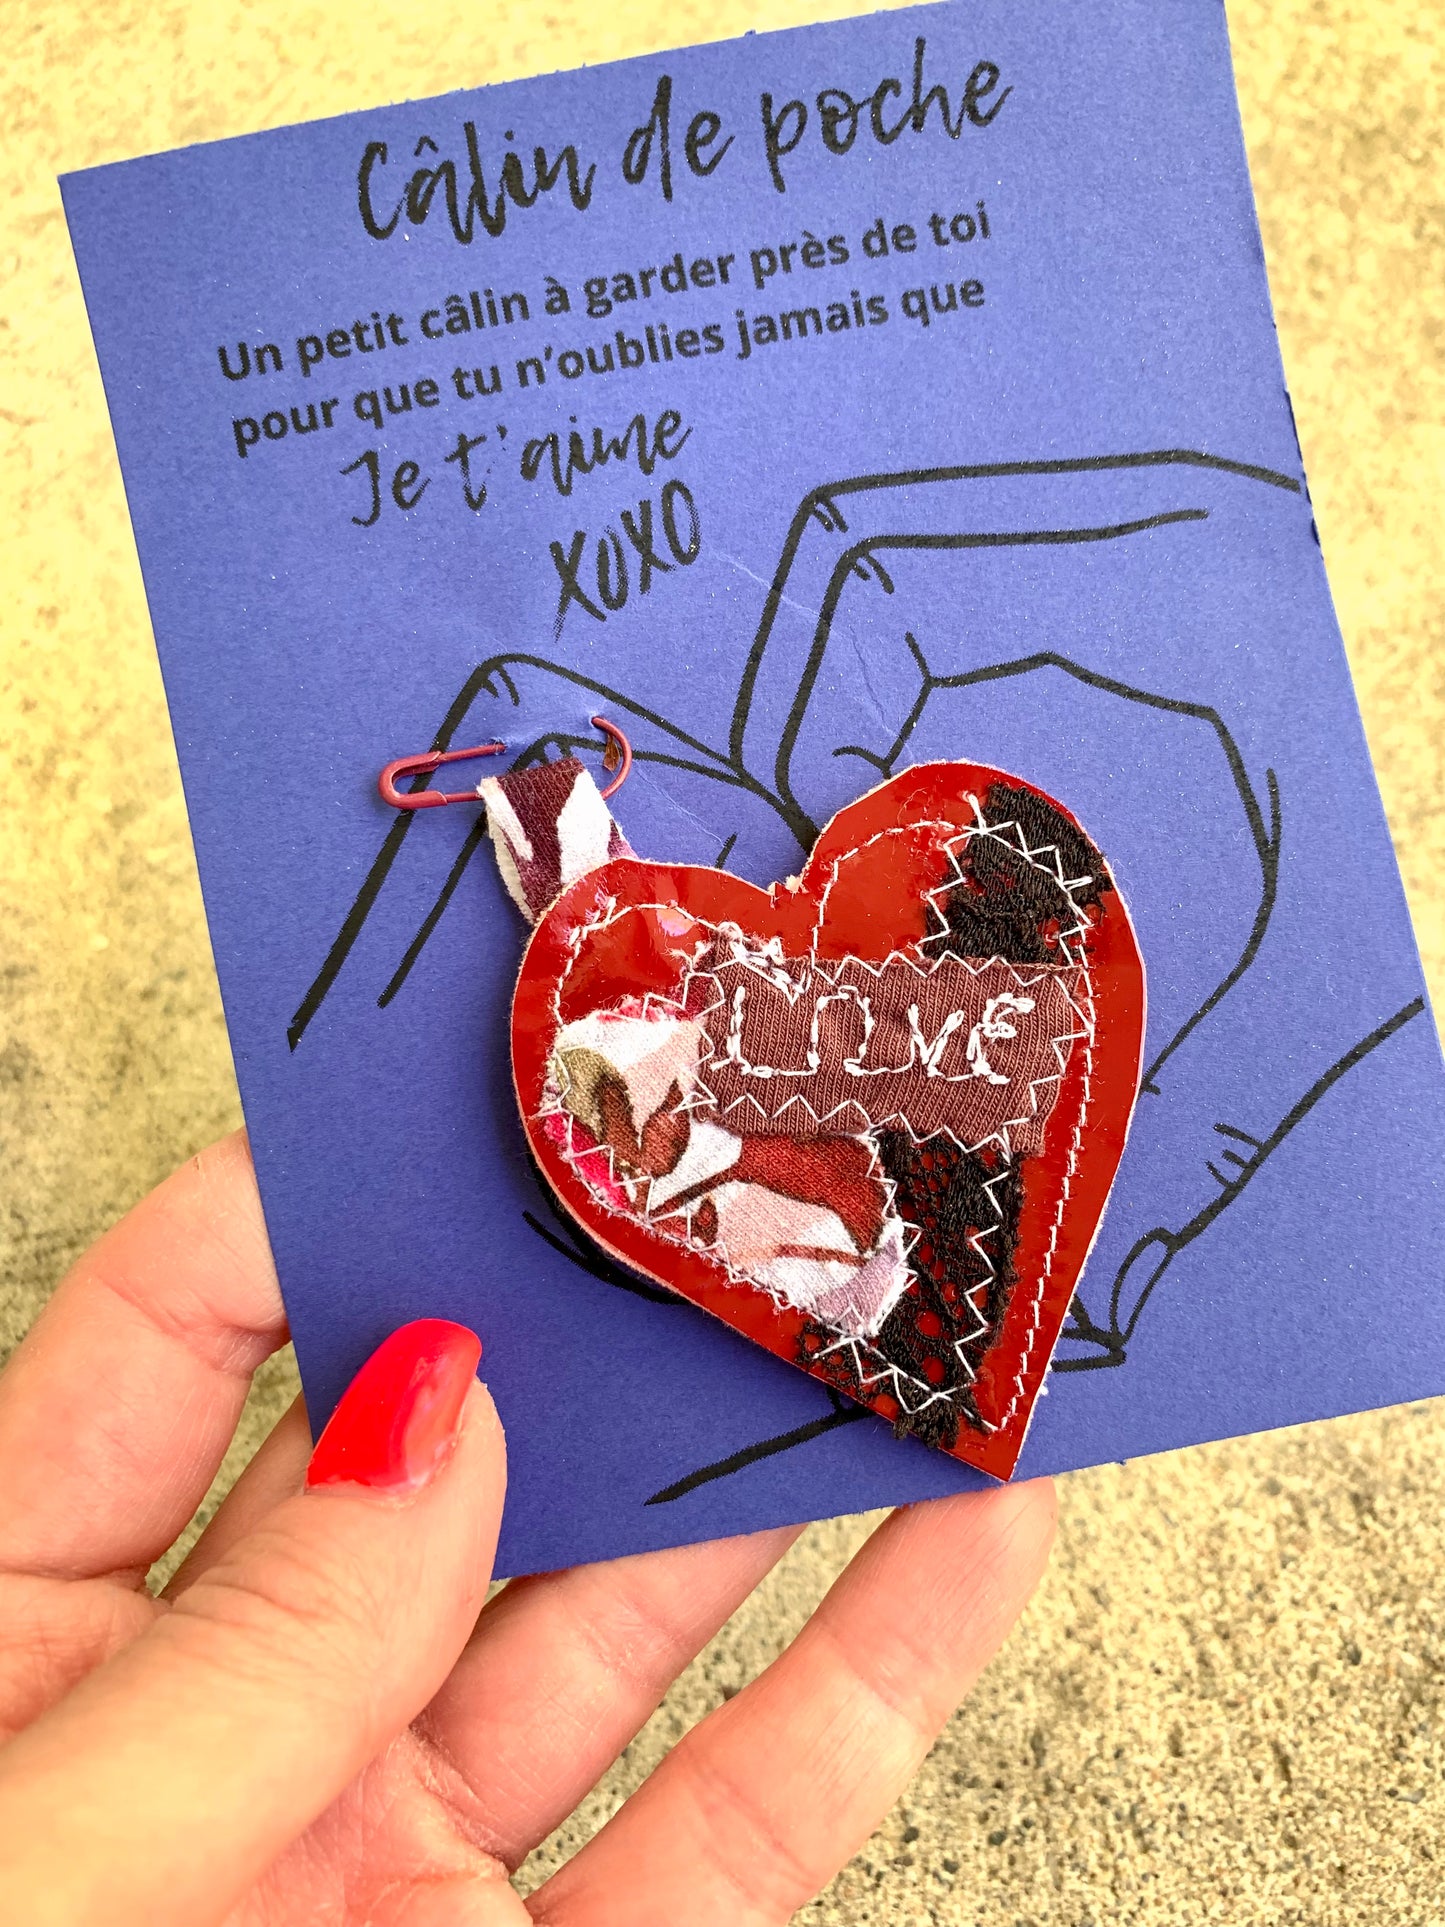 Câlin de poche
Un petit câlin à garder près de toi
pour que tu n'oublies jamais que
Je t'aime
XOXO
LOVE